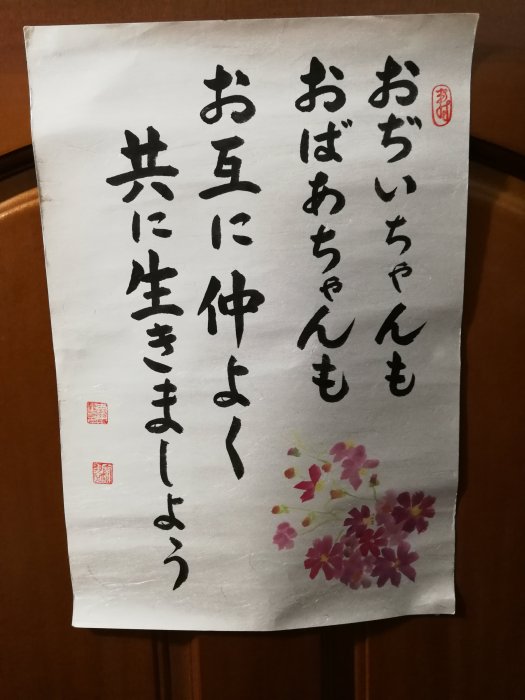 おぢいちゃんも
おばあちゃんも
お互に仲よく
共に生きましょう